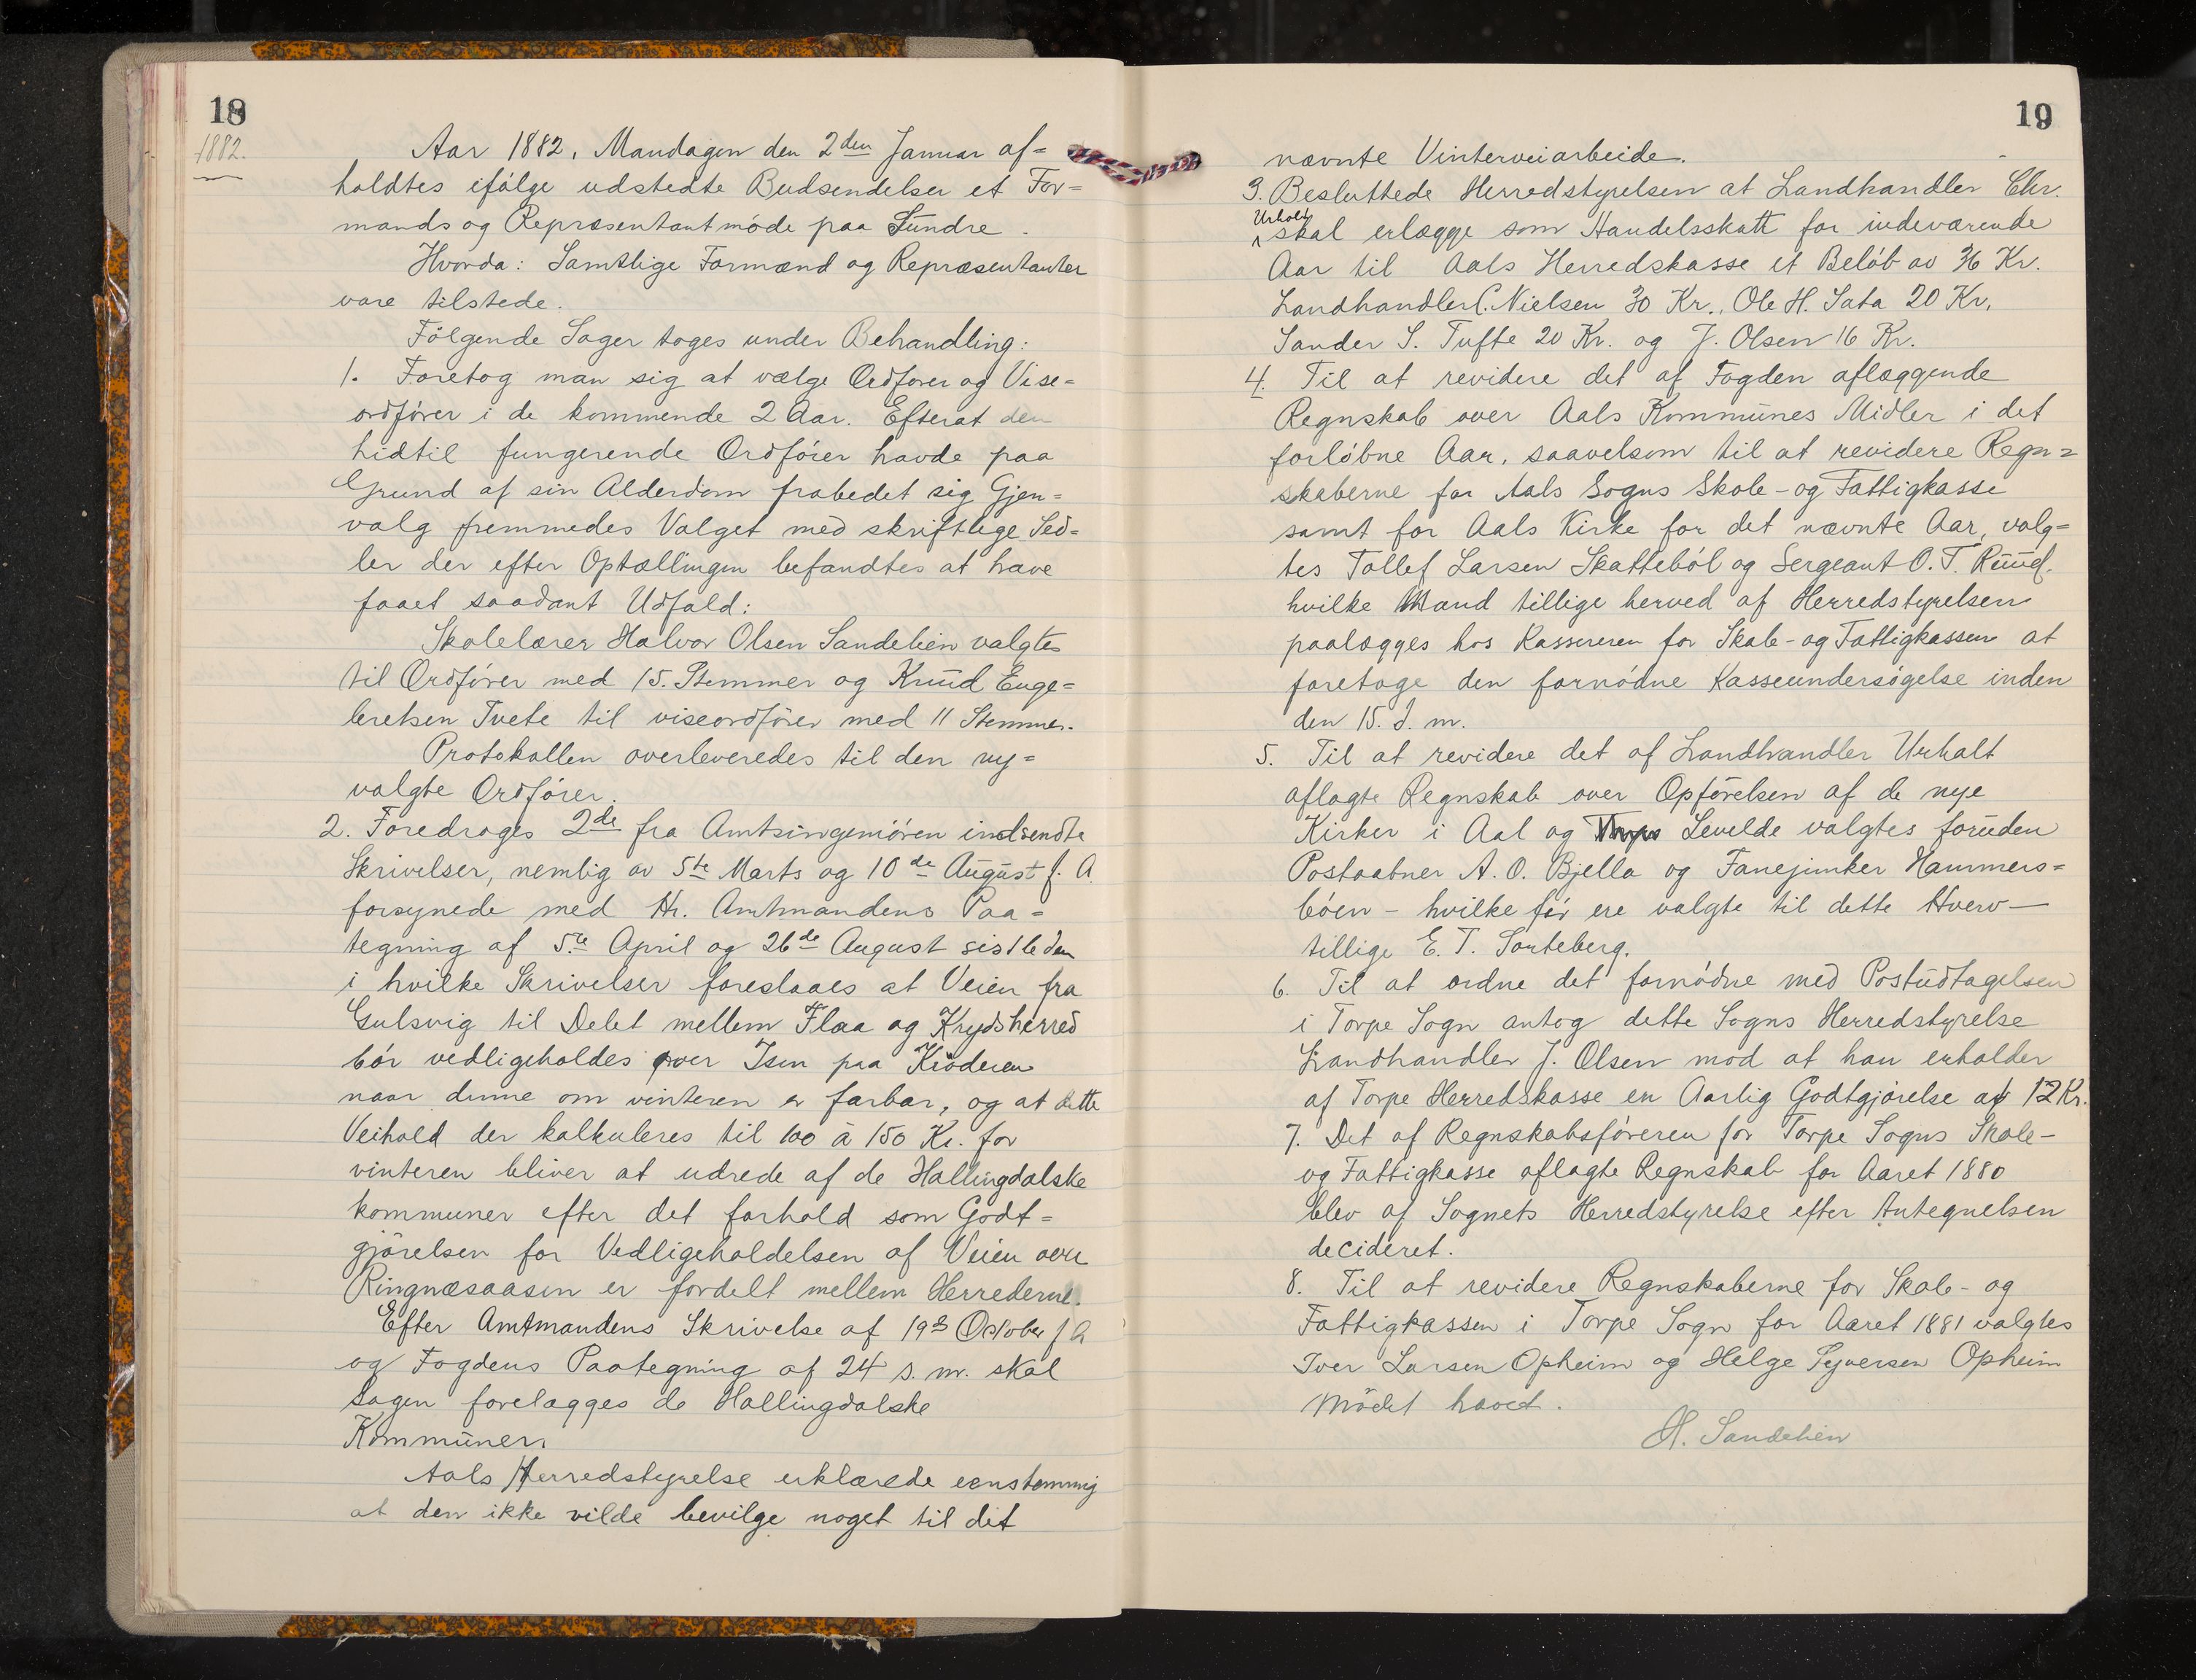 18
1882.
Aar 1882, Mandagen den 2den Januar af=
holdtes ifølge udstedte Budsendelser et For=
mands og Repræsentantmøde paa Sundre.
Hvorda: Samtlige Formænd og Repræsentanter
vare tilstede.
Følgende Sager toges under Behandling:
1. Foretog man sig at vælge Ordfører og Vise=
ordfører i de kommende 2 Aar. Efterat den
hidtil fungerende Ordfører havde paa
Grund af sin Alderdom frabedet sig Gjen=
valg fremmedes Valget med skriftlige Sed=
ler der efter Optællingen befandtes at have
faaet saadant Udfald:
Skolelærer Halvor Olsen Sandelien valgtes
til Ordfører med 15. Stemmer og Knud Enge=
bretsen Tvete til viseordfører med 11 Stemmer.
Protokollen overleveredes til den ny=
valgte Ordfører.
2. Foredroges 2de fra Amtsingeniøren indsendte
Skrivelser, nemlig av 5te Marts og 10de August f. A.
forsynede med Hr. Amtmandens Paa=
tegning af 5te April og 26de August sistleden
i hvilke Skrivelser foreslaaes at Veien fra
Gulsvig til Delet mellem Flaa og Krydsherred
bør vedligeholdes over Isen paa Krøderen
naar denne om vinteren er farbar, og at dette
Veihold der kalkuleres til 100 à 150 Kr. for
vinteren bliver at udrede af de Hallingdalske
kommuner efter det forhold som Godt=
gjørelsen for Vedligeholdelsen af Veien over
Ringnæsaasen er fordelt mellem Herrederne.
Efter Amtmandens Skrivelse af 19de October f A
og Fogdens Paategning af 24 s. m. skal
sagen forelægges de Hallingdalske
Kommuner.
Aals Herredstyrelse erklærede eenstemmig
at den ikke vilde bevilge noget til det
19
nævnte Vinterveiarbeide.
3. Besluttede Herredstyrelsen at Landhandler Chr.
Urholt skal erlægge som Handelsskatt for indeværende
Aar til Aals Herredskasse et Beløb av 36 Kr.
Landhandler C. Nielsen 30 Kr., Ole H. Sata 20 Kr,
Sander S. Tufte 20 Kr. og J. Olsen 16 Kr.
4. Til at revidere det af Fogden aflæggende
Regnskab over Aals Kommunes Midler i det
forløbne Aar, saavelsom til at revidere Regn=
skaberne for Aals Sogns Skole- og Fattigkasse
samt for Aals Kirke for det nævnte Aar, valg=
tes Tollef Larsen Skattebøl og Sergeant O. T. Ruud.
hvilke Mænd tillige herved af Herredstyrelsen
paalægges hos Kassereren for Skole- og Fattigkassen at
foretage den fornødne Kasseundersøgelse inden
den 15. d. m.
5. Til at revidere det af Landhandler Urholt
aflagte Regnskab over Opførelsen af de nye
Kirker i Aal og Levelde valgtes foruden
Postaabner A. O. Bjella og Fanejunker Hammers=
bøen - hvilke før ere valgte til dette Hverv -
tillige E. T. Sorteberg.
6. Til at ordne det fornødne med Postudtagelsen
i Torpe Sogn antog dette Sogns Herredstyrelse
Landhandler J. Olsen mod at han erholder
af Torpe Herredskasse en Aarlig Godtgjørelse af 12 Kr.
7. Det af Regnskabsføreren for Torpe Sogns Skole-
og Fattigkasse aflagte Regnskab for Aaret 1880
blev af Sognets Herredstyrelse efter Antegnelsen
decideret.
8. Til at revidere Regnskaberne for Skole- og
Fattigkassen i Torpe Sogn for Aaret 1881 valgtes
Iver Larsen Opheim og Helge Syversen Opheim
Mødet hævet.
H. Sandelien